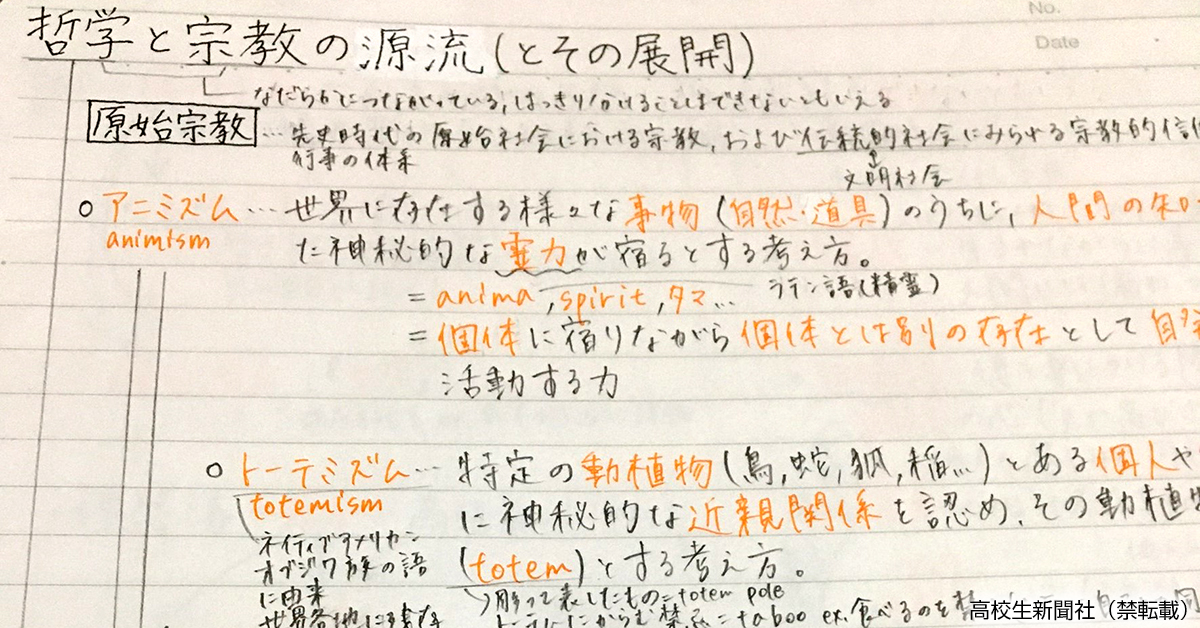 No.
Date
哲学と宗教の源流(とその展開)
なだらかにつながっている,はっきり分けることはできないともいえる
原始宗教…先史時代の原始社会における宗教,および伝統的社会にみられる宗教的信
行事の体系
文明社会
○アニミズム…世界に存在する様々な事物(自然・道具)のうちに,人間の知
animism
た神秘的な霊力が宿るとする考え方。
=anima,spirit,タマ… ラテン語(精霊)
=個体に宿りながら個体とは別の存在として自
活動する力
○トーテミズム…特定の動植物(鳥,蛇,狐,稲…)とある個人や
totemism
に神秘的な近親関係を認め,その動植
ネイティブアメリカン
オブジワ族の語
に由来
(totem)とする考え方。
→彫って表したもの=totem pole
世界各地に
禁忌=taboo ex.食べるのを禁
高校生新聞社(禁転載)